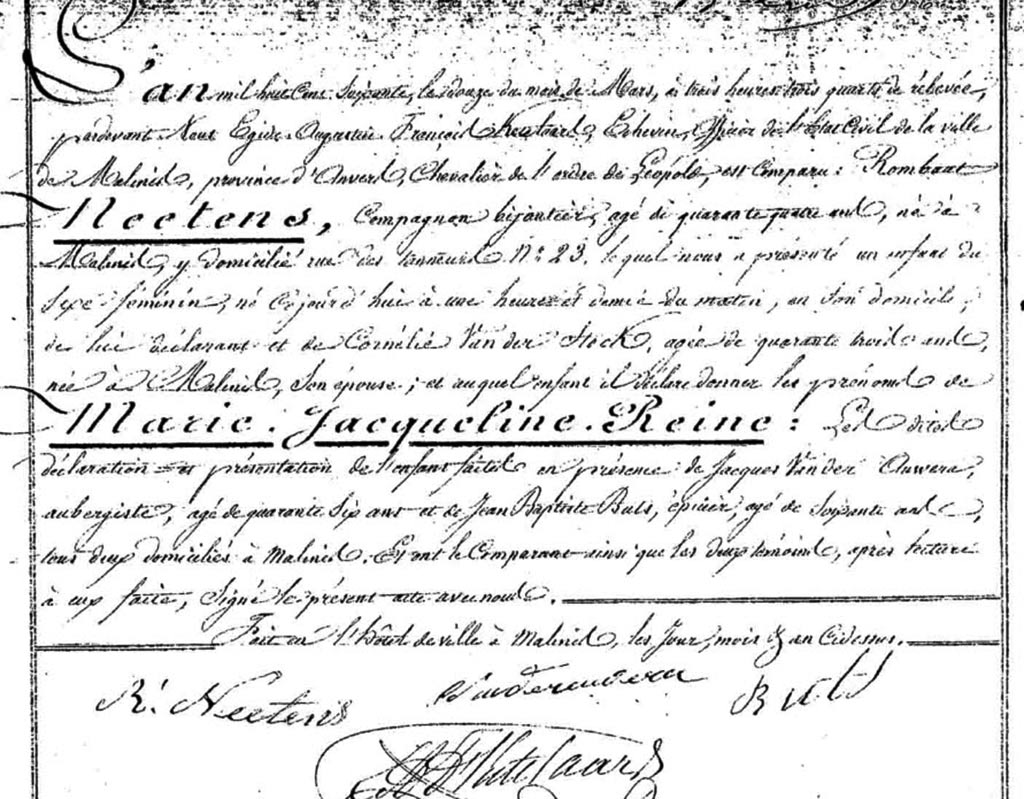 L'an mil huit cent Soixante, le douze du mois de Mars, à trois heures trois quarts de relevée,
pardevant Nous Egide Augustin François Echevin, Officier de l'Etat Civil de la ville
de Malines, province d'Anvers, Chevalier de l'ordre de Léopold, est Comparu: Rombaut
Neetens, Compagnon bijoutier, agé de quarante quatre ans, né à
Malines, y domicilié rue des tanneurs N° 23. lequel nous a présenté un enfant du
Sexe féminin, né ce jourd'hui à une heure et demie du matin, en Son domicile,
de lui déclarant et de Cornélie Van der Stock, agée de quarante trois ans,
née à Malines, Son épouse; et auquel enfant il déclare donner les prénoms de
Marie. Jacqueline. Reine: Les dites
déclaration et présentation de l'enfant faites en présence de Jacques Van der Auwera,
aubergiste, agé de quarante Six ans et de Jean Baptiste Buls, épicier, agé de Soixante ans,
tous deux domiciliés à Malines. Et ont le Comparant ainsi que les deux témoins, après lecture
à eux faite, Signé le présent acte avec nous.
Fait en l'hôtel de ville à Malines, les Jour, mois & an Cidessus.
R. Neetens Vanderauwera Buls